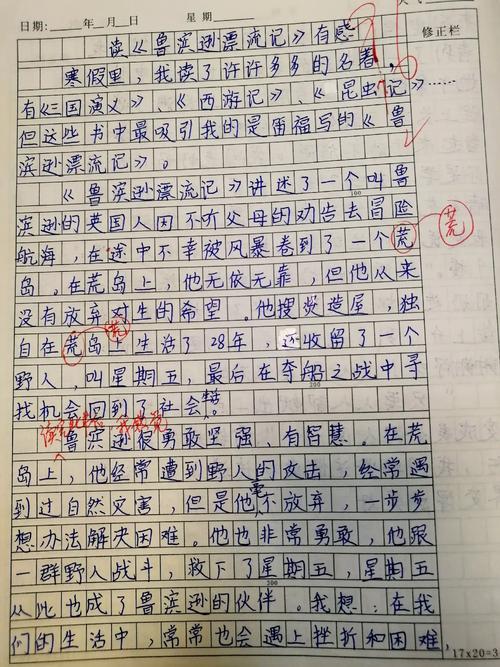 日期: 年 月 日 星期
修正栏
读《鲁滨逊漂流记》有感
寒假里，我读了许许多多的名著，
有《三国演义》、《西游记》、《昆虫记》……
但这些书中最吸引我的是雷福写的《鲁
滨逊漂流记》。
《鲁滨逊漂流记》讲述了一个叫鲁
100
滨逊的英国人因不听父母的劝告去冒险
航海，在途中不幸被风暴卷到了一个荒 荒
岛。在荒岛上，他无依无靠，但他从来
没有放弃对生的希望。他搜 造屋，独
自在荒岛上生活了28年，还收留了一个
荒
野人，叫星期五，最后在夺船之战中寻
200
找机会回到了社会。
鲁滨逊很勇敢坚强、有智慧。在荒
岛上，他经常遭到野人的攻击，经常遇
到过自然灾害，但是他毫不放弃，一步步
想办法解决困难。他也非常勇敢，他跟
一群野人战斗，救下了星期五，星期五
300
从此也成了鲁滨逊的伙伴。我想：在我
们的生活中，常常也会遇上挫折和困难，
17×20=3